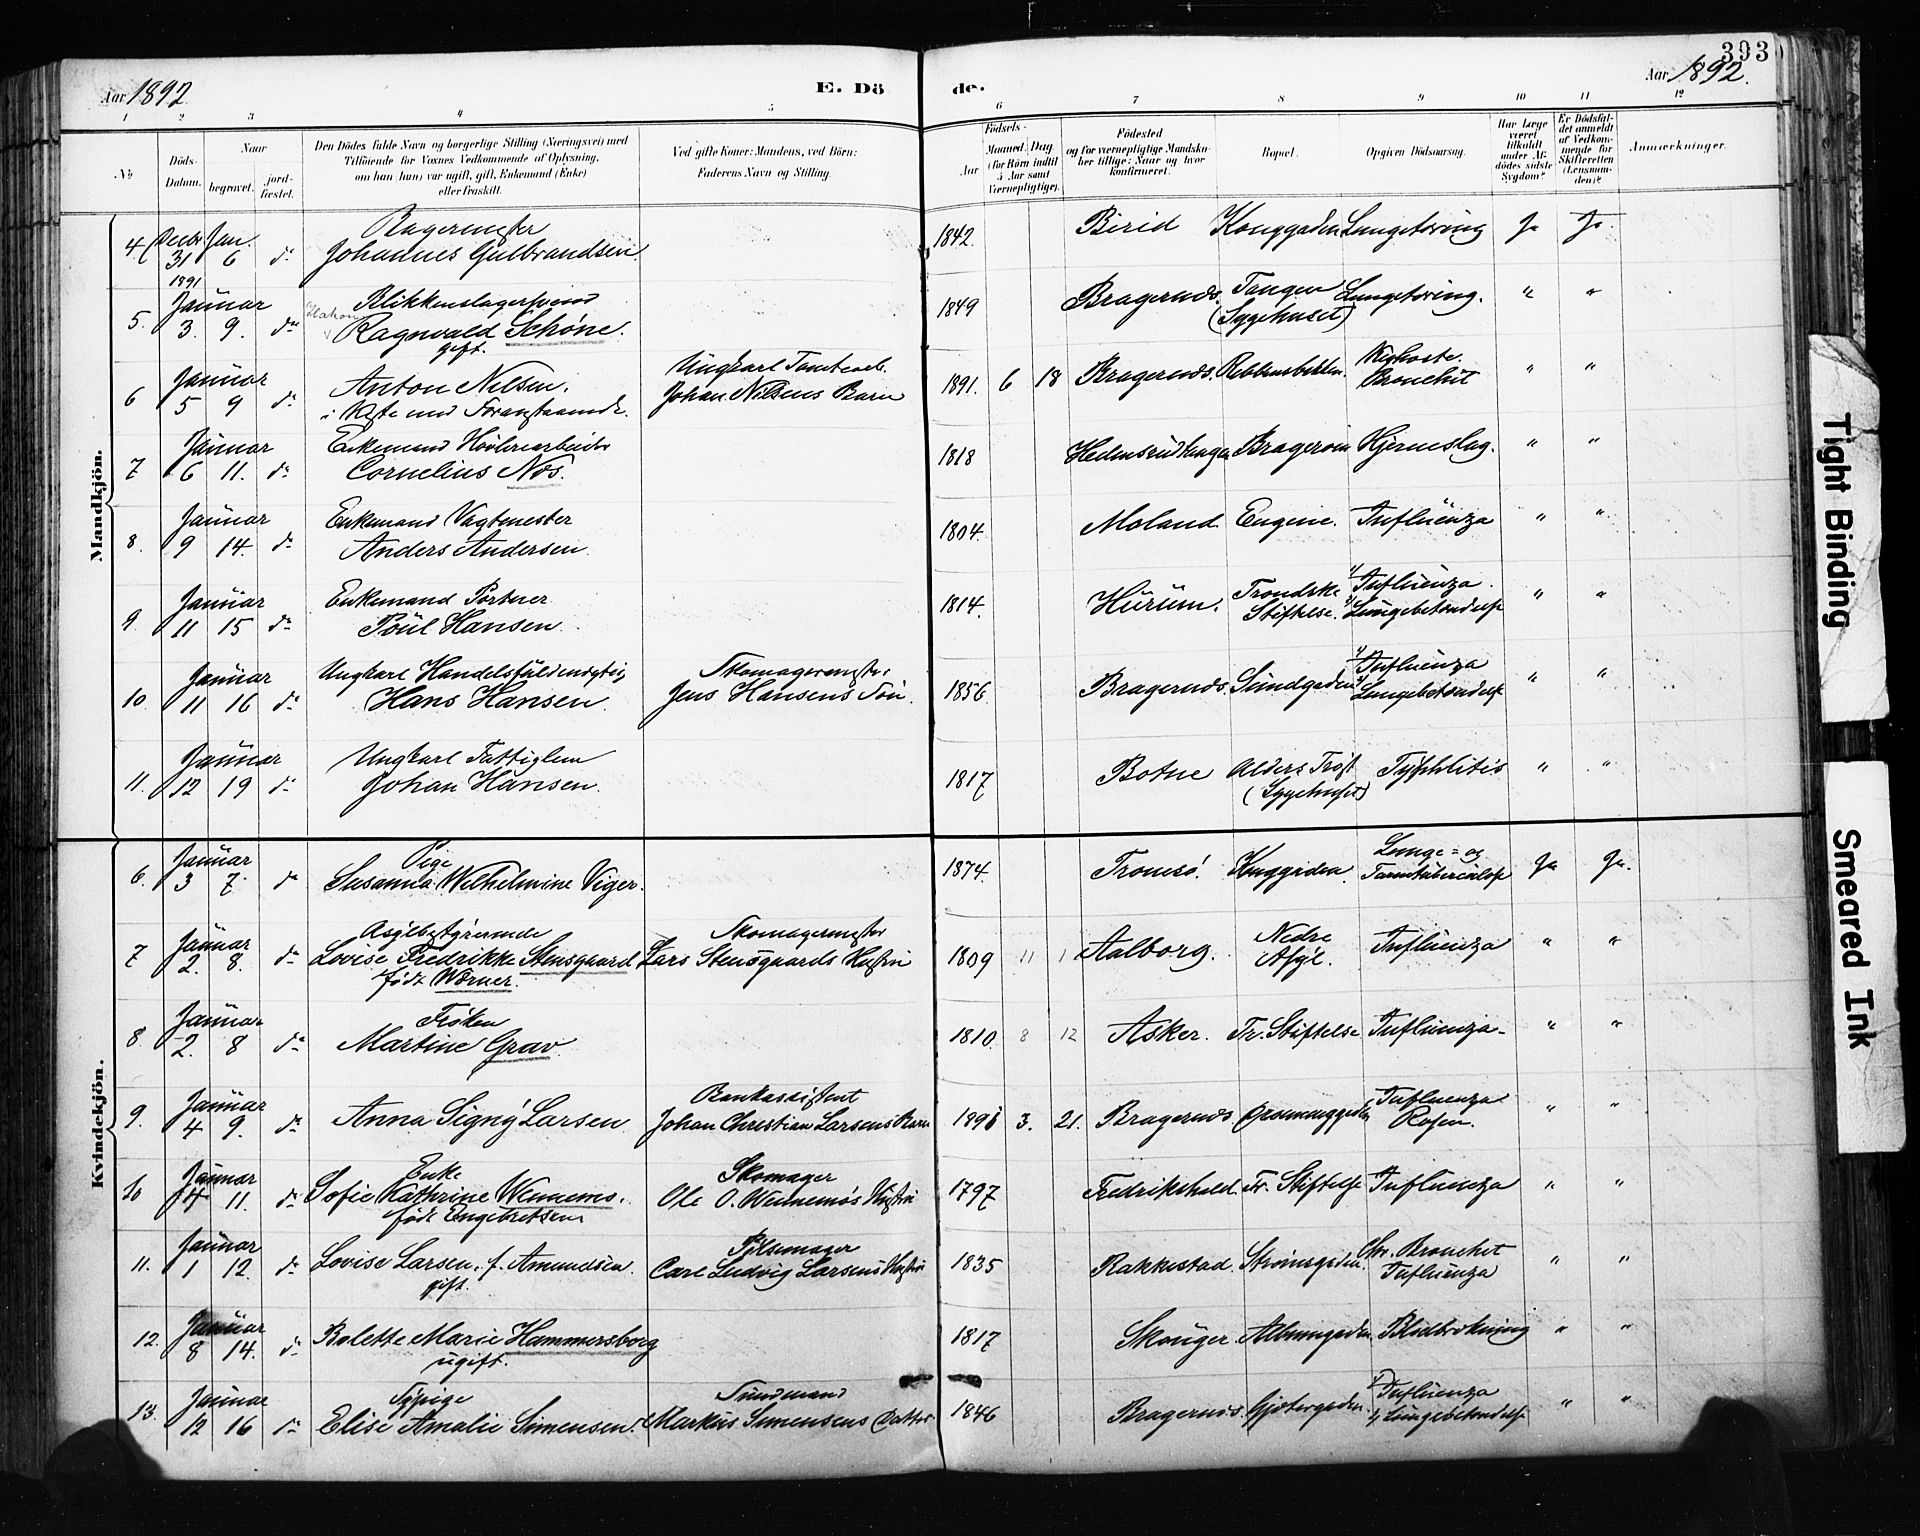 393
Aar 1892
E. Dö
de.
Aar 1892.
1 2 3 4 5 6 7 8 9 10 11 12
No
Döds-Datum.
Naar
begravet.
jord-fæstet.
Den Dödes fulde Navn og borgerlige Stilling (Næringsvei) med
Tilföiende for Voxnes Vedkommende af Oplysning,
om han (hun) var ugift, gift, Enkemand (Enke)
eller fraskilt.
Ved gifte Koner: Mandens, ved Börn:
Faderens Navn og Stilling.
Födsels-
Aar
Maaned. Dag
(for Börn indtil
5 Aar samt
Værnepligtige).
Födested
og for værnepligtige Mandska-
ber tillige: Naar og hvor
konfirmeret.
Bopæl.
Opgiven Dödsaarsag.
Har Læge
været
tilkaldt
under Af-
dödes sidste
Sygdom?
Er Dödsfal-
det anmeldt
af Vedkom-
mende for
Skifteretten
(Lensman-
den)?
Anmærkninger.
Mandkjön.
4 Decbr 31 1891 Jan. 6 do Bagermester
Johannes Gulbrandsen. 1842. Birid Konggaden Lungetæring Ja Ja
5. Januar 3. 9. do Blikkenslagersvend
Hakon Ragnvald Schöne. gift. 1849 Bragernæs. Tangen (Sygehuset) Lungetæring. " "
6 Januar 5 9 do Anton Nilsen.
Ungkarl
Johan Nilsens Barn 1891. 6 18 Bragernæs. Kighoste. Bronchit " "
7 Januar 6 11. do Enkemand Høvleriarbeider
Cornelius Nos. 1818 Bragerøen Hjerneslag. " "
8. Januar 9 14. do Enkemand Vagtmester
Anders Andersen. 1804. Moland Eugene. Influenza " "
9. Januar 11 15 do Enkemand Portner
Poul Hansen. 1814. Hurum. Trondske Stiftelse. 1) Influenza. 2) Lungebetændelse " "
10. Januar 11 16 do Ungkarl Handelsfuldmægtig
Hans Hansen. Skomagermester
Jens Hansens Søn. 1856. Bragernæs. Sundgaden 1) Influenza 2) Lungebetændelse " "
11. Januar 12 19 do Ungkarl Fattiglem
Johan Hansen. 1817 Botne Alders Trøst (Sygehuset) Typhlitis " "
Kvindekjön.
6. Januar 3 7. do Pige
Susanna Wilhelmine Viger. 1874. Tromsö. Konggaden. Lunge- og Tarmtuberculose Ja Ja.
7 Januar 2. 8. do Asylbestyrerinde
Lovise Fredrikke Stensgaard
født Wærner. Skomagermester
Lars Stensgaards Hustru 1809 11 1 Aalborg. Nedre Asyl. Influenza " "
8. Januar 2. 8 do Frøken
Martine Grav. 1810. 8 12 Asker. Tr. Stiftelse Influenza " "
9. Januar 4 9. do Anna Signy Larsen. Bankassistent
Johan Christian Larsens Barn 1891 3. 21. Bragernæs Influenza Rosen. " "
10 Januar 4 11. do Enke
Sofie Kathrine Wennemo.
født Engebretsen Skomager
Ole O. Wennemos Hustru 1797 Fredrikshald. Tr. Stiftelse Influenza " "
11. Januar 1 12. do Lovise Larsen, f. Amundsen.
gift. Pølsemager
Carl Ludvig Larsens Hustru 1835 Rakkestad. Strømsgaden. Chr. Bronchit Influenza " "
12. Januar 8 14. do Bolette Marie Hammersborg
ugift. 1817 Skouger Albumgaden Blodbrækning " "
13. Januar 12 16 do Sypige
Elise Amalie Simensen. Sundmand
Markus Simensens Datter 1846 Bragernæs. Gjetergaden. 1) Influenza 2) Lungebetændelse " "
Tight Binding
Smeared Ink